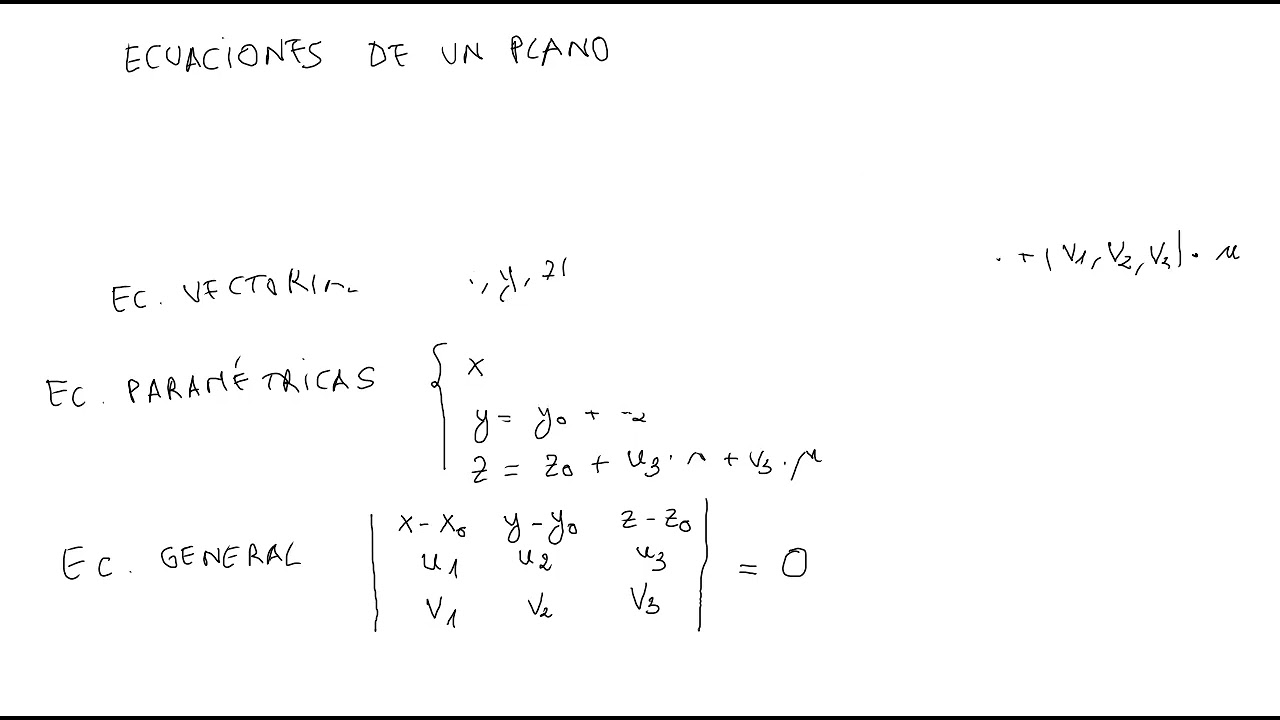 ECUACIONES DE UN PLANO
+(V1, V2, V3)· μ
EC. , y, z)
EC. PARAMÉTRICAS { x
y = y0 +
z = z0 + u3· + v3·μ
EC. GENERAL | x-x0 y-y0 z-z0 |
| u1 u2 u3 | = 0
| V1 V2 V3 |